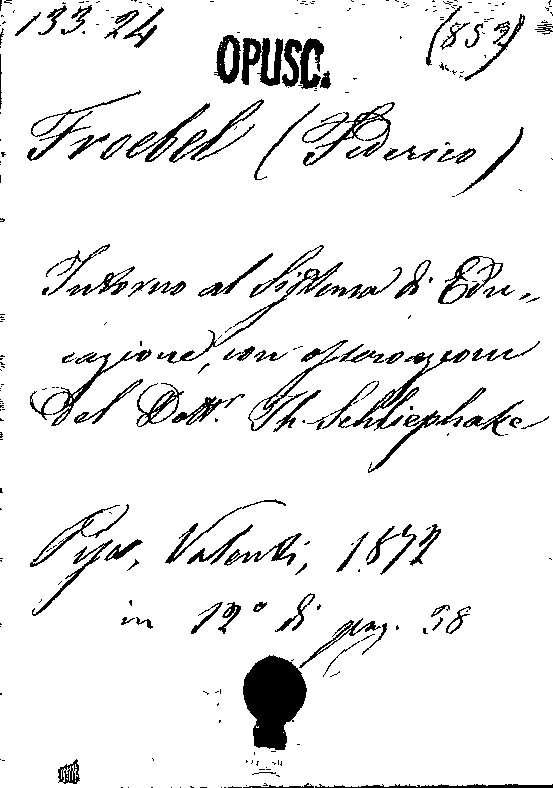 133.24 (852)
OPUSC.
Froebel (Federico)
Intorno al Sistema di Edu„
cazione, con osservazioni
del Dott.r Th. Schliephake
Pisa, Valenti, 1872
in 12° di pag. 38